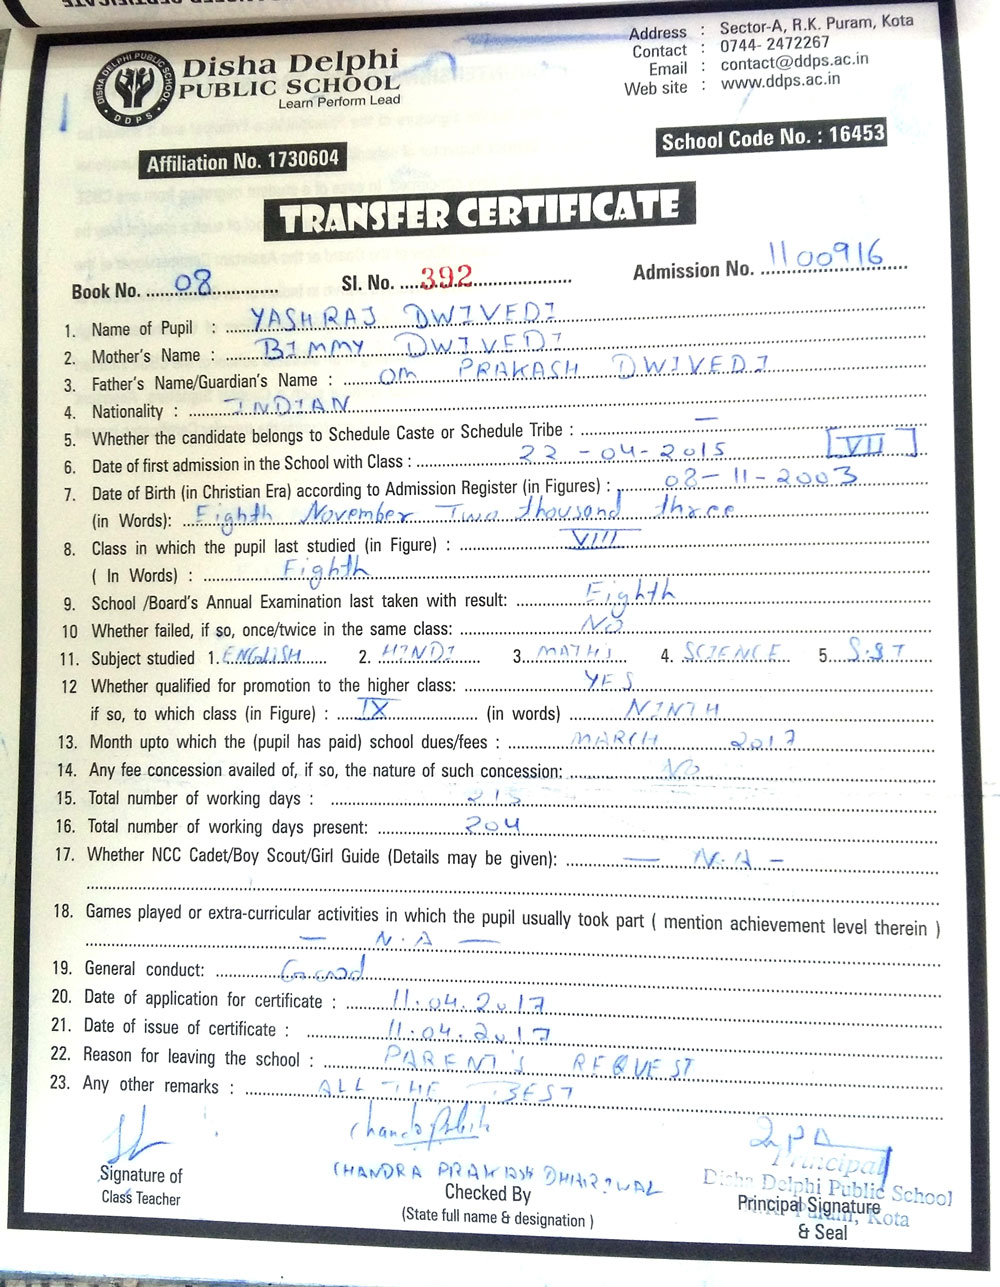 DISHA DELPHI PUBLIC SCHOOL
DDPS
Disha Delphi
PUBLIC SCHOOL
Learn Perform Lead
Address : Sector-A, R.K. Puram, Kota
Contact : 0744- 2472267
Email : contact@ddps.ac.in
Web site : www.ddps.ac.in
Affiliation No. 1730604
School Code No. : 16453
TRANSFER CERTIFICATE
Book No. 08 Sl. No. 392 Admission No. 1100916
1. Name of Pupil : YASHRAJ DWIVEDI
2. Mother's Name : BIMMY DWIVEDI
3. Father's Name/Guardian's Name : OM PRAKASH DWIVEDI
4. Nationality : INDIAN
5. Whether the candidate belongs to Schedule Caste or Schedule Tribe : —
6. Date of first admission in the School with Class : 22-04-2015 [VII]
7. Date of Birth (in Christian Era) according to Admission Register (in Figures) : 08-11-2003
(in Words): Eighth November Two thousand three
8. Class in which the pupil last studied (in Figure) : VIII
( In Words) : Eighth
9. School /Board's Annual Examination last taken with result: Eighth
10 Whether failed, if so, once/twice in the same class: NO
11. Subject studied 1. ENGLISH 2. HINDI 3. MATHS 4. SCIENCE 5. S.ST
12 Whether qualified for promotion to the higher class: YES
if so, to which class (in Figure) : IX (in words) NINTH
13. Month upto which the (pupil has paid) school dues/fees : MARCH 2017
14. Any fee concession availed of, if so, the nature of such concession: NO
15. Total number of working days : 213
16. Total number of working days present: 204
17. Whether NCC Cadet/Boy Scout/Girl Guide (Details may be given): — N.A —
18. Games played or extra-curricular activities in which the pupil usually took part ( mention achievement level therein )
— N.A —
19. General conduct: Good
20. Date of application for certificate : 11.04.2017
21. Date of issue of certificate : 11.04.2017
22. Reason for leaving the school : PARENT'S REQUEST
23. Any other remarks : ALL THE BEST
CHANDRA PRAKASH DHARIWAL
Principal
Disha Delphi Public School
Puram, Kota
Signature of
Class Teacher
Checked By
(State full name & designation )
Principal Signature
& Seal